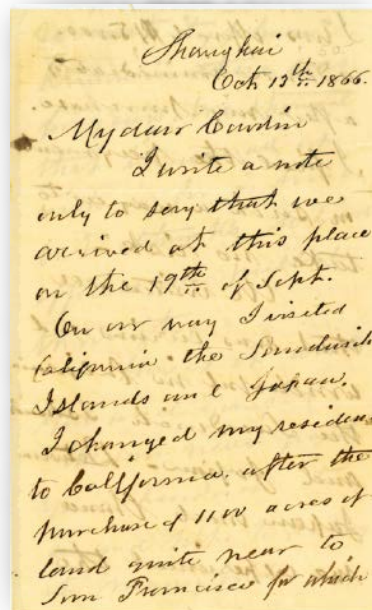 Shanghai
Oct 13th 1866.
My dear Cowdin
I write a note
only to say that we
arrived at this place
on the 19th of Sept.
On our way I visited
California the Sandwich
Islands and Japan.
I changed my residence
to California, after the
purchase of 1100 acres of
land quite near to
San Francisco for which